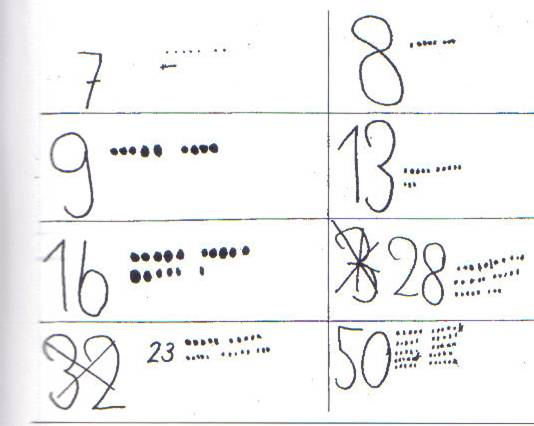 7 8
9 13
16 28
32 23 50